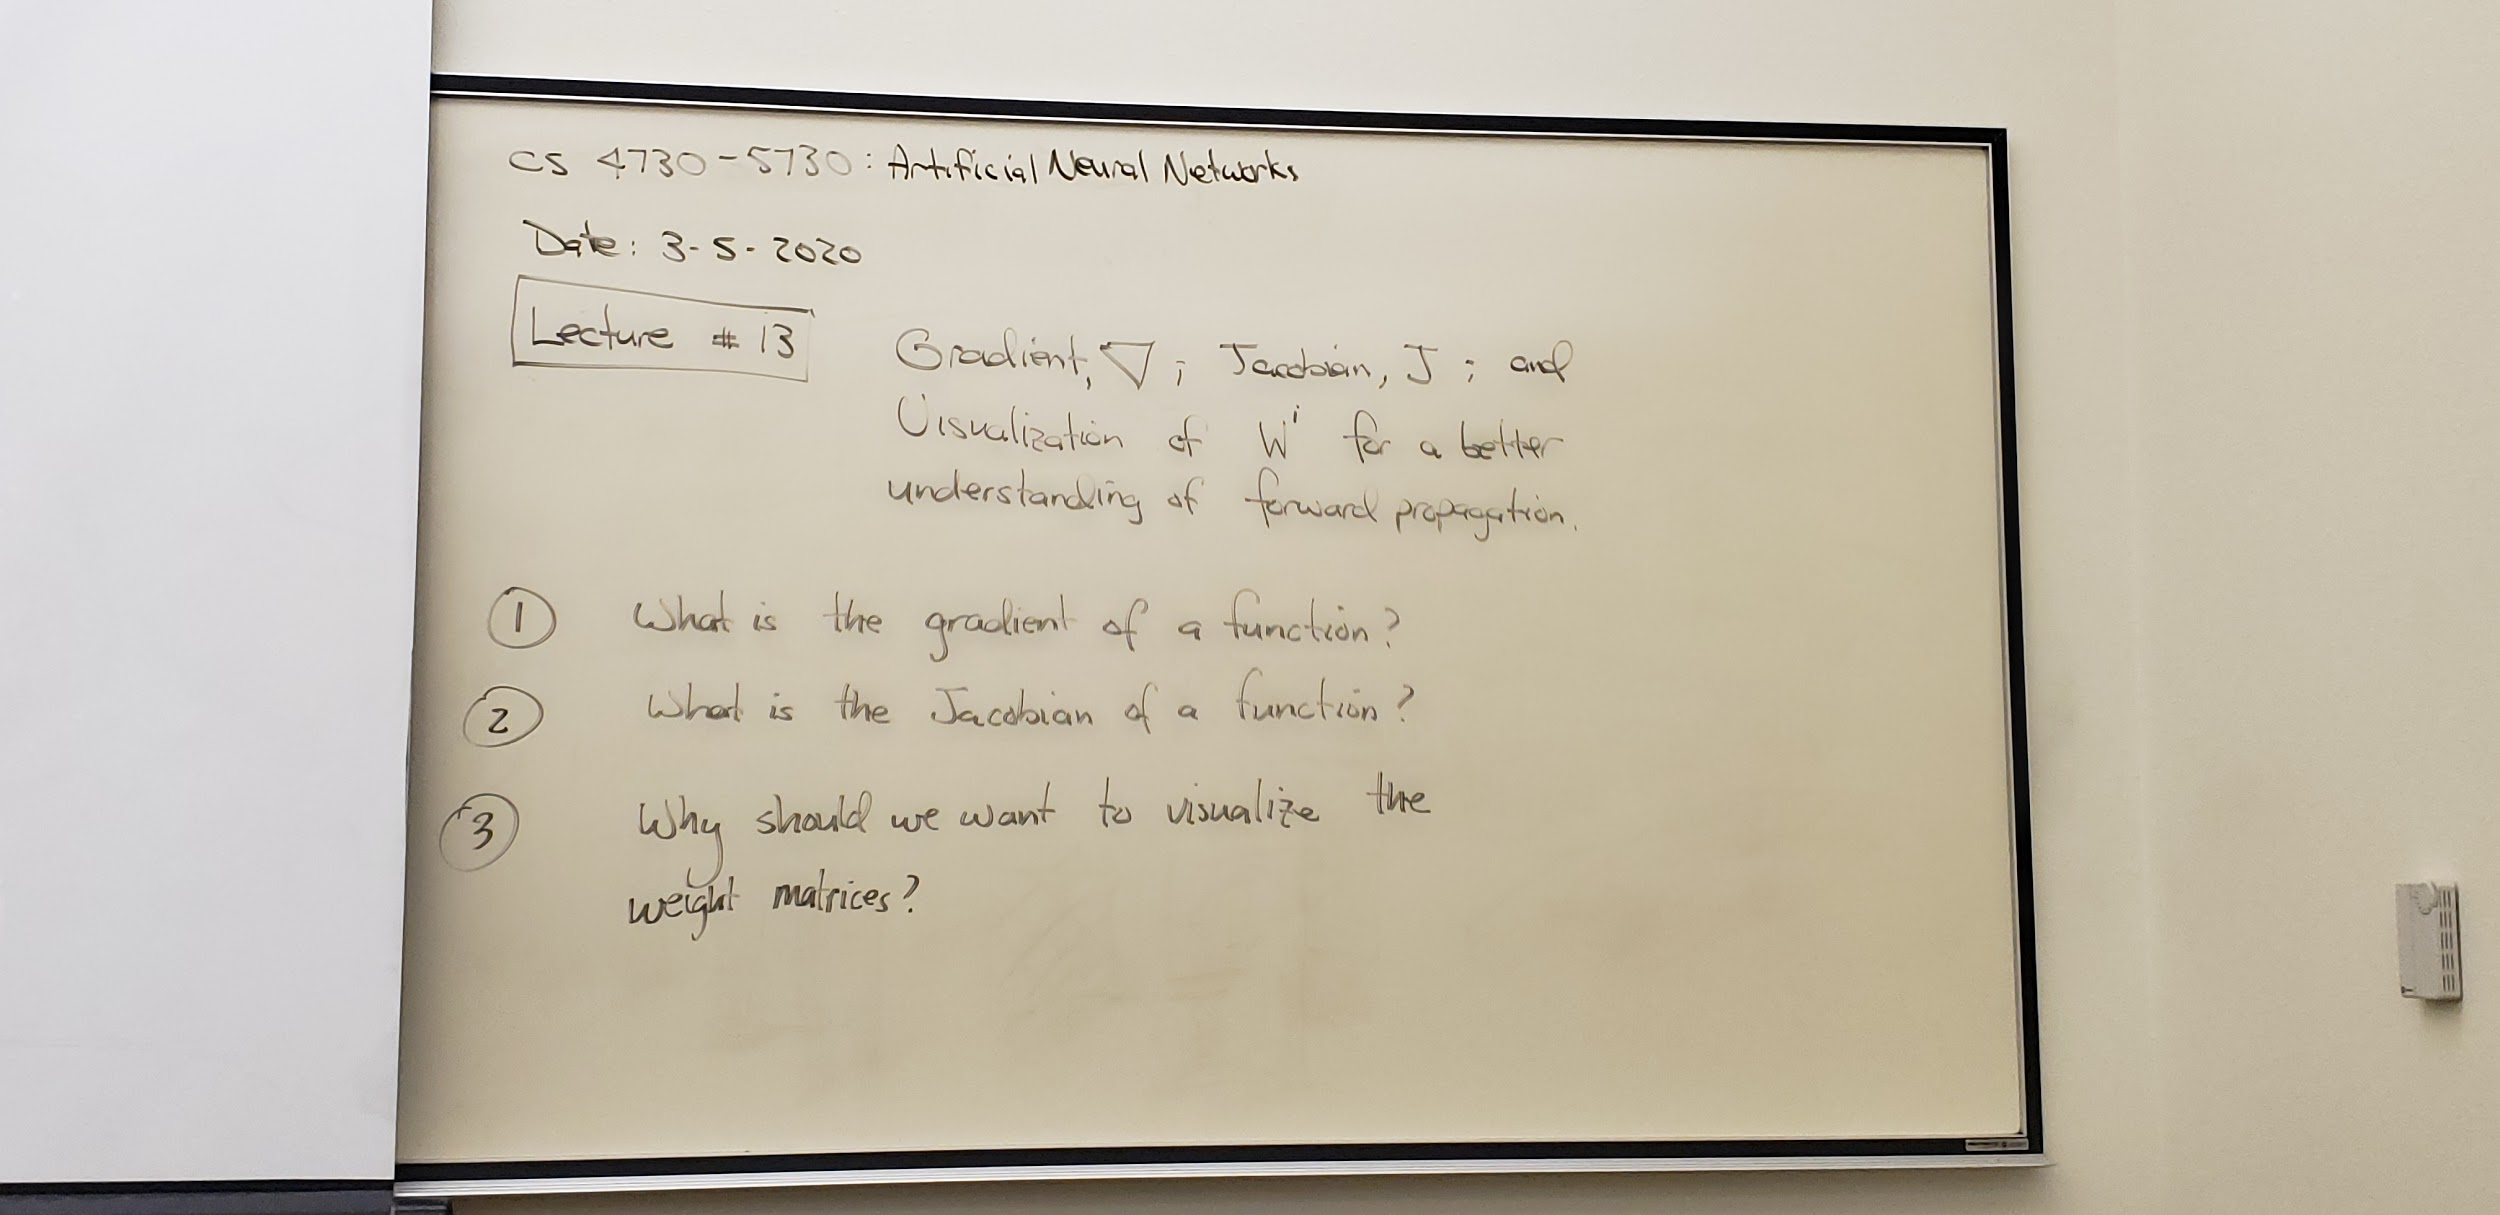 CS 4730-5730: Artificial Neural Networks
Date: 3-5-2020
Lecture # 13
Gradient, ∇; Jacobian, J; and
Visualization of Wⁱ for a better
understanding of forward propagation.
1 What is the gradient of a function?
2 What is the Jacobian of a function?
3 Why should we want to visualize the
weight matrices?